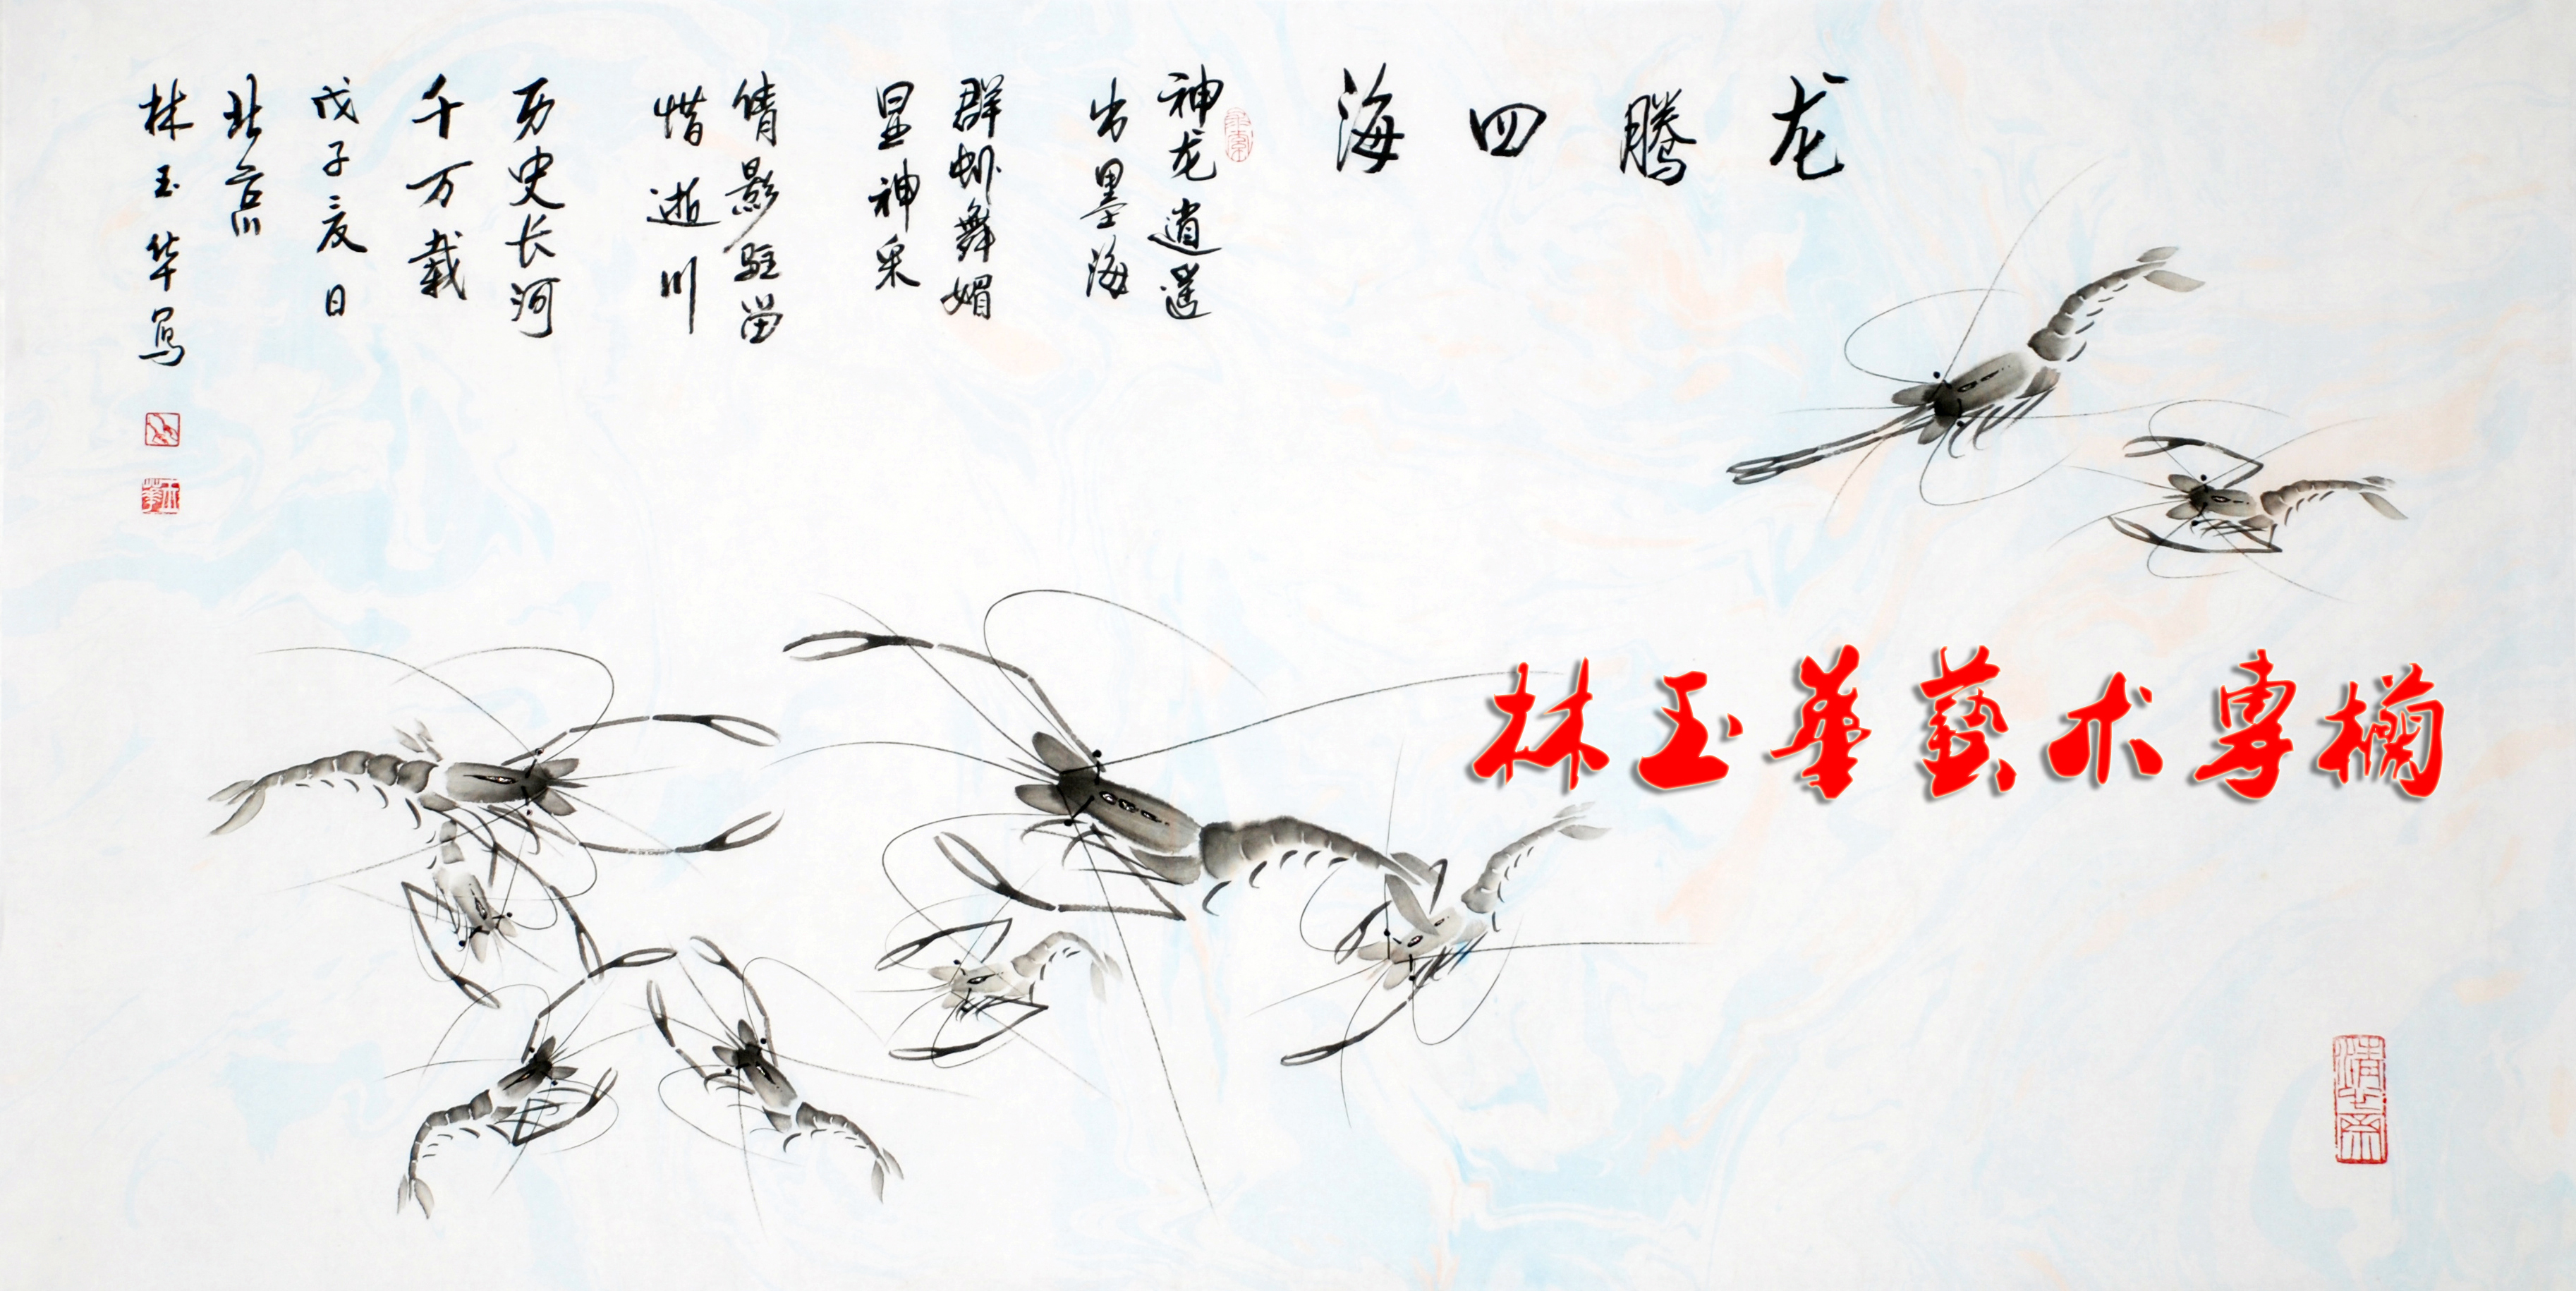 龙腾四海
神龙逍遥
出墨海
群虾舞媚
显神采
倩影驻留
惜逝川
历史长河
千万载
戊子夏日
北京
林玉华写
林玉華藝术專欄